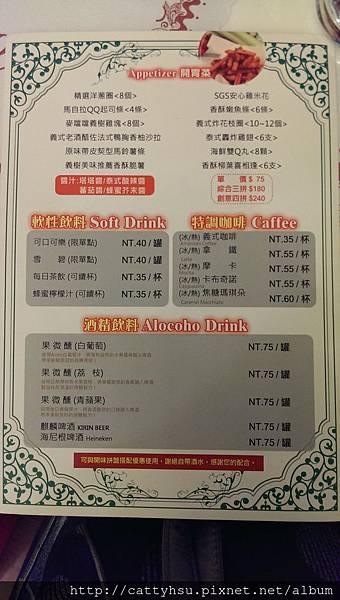 Appetizer 開胃菜
精選洋蔥圈<8個>
SGS安心雞米花
馬自拉QQ起司條<4條>
香酥嫩魚條<6條>
麥噹噹義樹雞塊<8個>
義式炸花枝圈<10~12個>
義式老酒醋佐法式鴨胸香柚沙拉
泰式轟炸雞翅<6支>
原味帶皮契型馬鈴薯條
海鮮雙Q丸<8顆>
義樹美味推薦香酥脆薯
香酥柳葉喜相逢<6支>
醬汁:塔塔醬/泰式酸辣醬
蕃茄醬/蜂蜜芥末醬
單 價$ 75
綜合三拼 $180
創意四拼 $240
軟性飲料 Soft Drink
可口可樂 (限單點) NT.40 / 罐
雪 碧 (限單點) NT.40 / 罐
每日茶飲 (可續杯) NT.35 / 杯
蜂蜜檸檬汁 (可續杯) NT.35 / 杯
特調咖啡 Caffee
(冰/熱) 義式咖啡 NT.35 / 杯
Americano Coffee
(冰/熱) 拿 鐵 NT.55 / 杯
Latte
(冰/熱) 摩 卡 NT.55 / 杯
Mocha
(冰/熱) 卡布奇諾 NT.55 / 杯
Cappuccino
(冰/熱) 焦糖瑪琪朵 NT.60 / 杯
Caramel Macchiato
酒精飲料 Alocoho Drink
果微醺 (白葡萄) NT.75 / 罐
果微醺 (荔 枝) NT.75 / 罐
果微醺 (青蘋果) NT.75 / 罐
麒麟啤酒 KIRIN BEER NT.75 / 罐
海尼根啤酒 Heineken NT.75 / 罐
可與開味拼盤搭配優惠使用。謝絕自帶酒水。感謝您的配合。
http://cattyhsu.pixnet.net/album